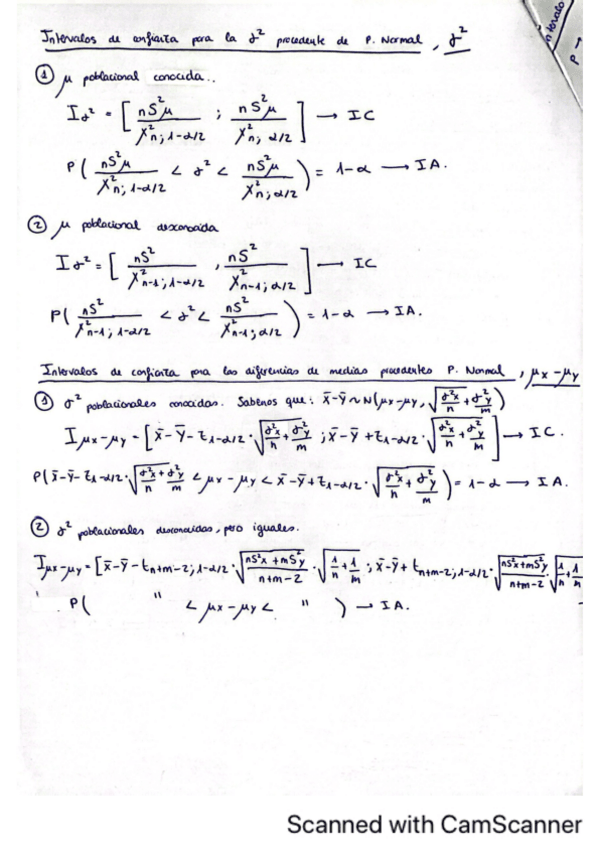 Intervalos de confianza para la σ² procedente de P. Normal, σ²
① μ poblacional conocida..
I σ² = [ nS²μ / χ²n; 1-α/2 ; nS²μ / χ²n; α/2 ] → IC
P ( nS²μ / χ²n; 1-α/2 < σ² < nS²μ / χ²n; α/2 ) = 1-α → IA.
② μ poblacional desconocida
I σ² = [ nS² / χ²n-1; 1-α/2 , nS² / χ²n-1; α/2 ] → IC
P ( nS² / χ²n-1; 1-α/2 < σ² < nS² / χ²n-1; α/2 ) = 1-α → IA.
Intervalos de confianza para las diferencias de medias procedentes P. Normal, μx - μy
① σ² poblacionales conocidas. Sabemos que: x̄-ȳ ~ N(μx-μy, √(σ²x/n + σ²y/m))
I μx-μy = [ x̄-ȳ - z1-α/2 · √(σ²x/n + σ²y/m) ; x̄-ȳ + z1-α/2 · √(σ²x/n + σ²y/m) ] → IC.
P ( x̄-ȳ - z1-α/2 · √(σ²x/n + σ²y/m) < μx-μy < x̄-ȳ + z1-α/2 · √(σ²x/n + σ²y/m) ) = 1-α → IA.
② σ² poblacionales desconocidas, pero iguales.
I μx-μy = [ x̄-ȳ - tn+m-2; 1-α/2 · √(nS²x+mS²y / n+m-2) · √(1/n + 1/m) ; x̄-ȳ + tn+m-2; 1-α/2 · √(nS²x+mS²y / n+m-2) · √(1/n + 1/m)
P ( " < μx-μy < " ) → IA.
Scanned with CamScanner